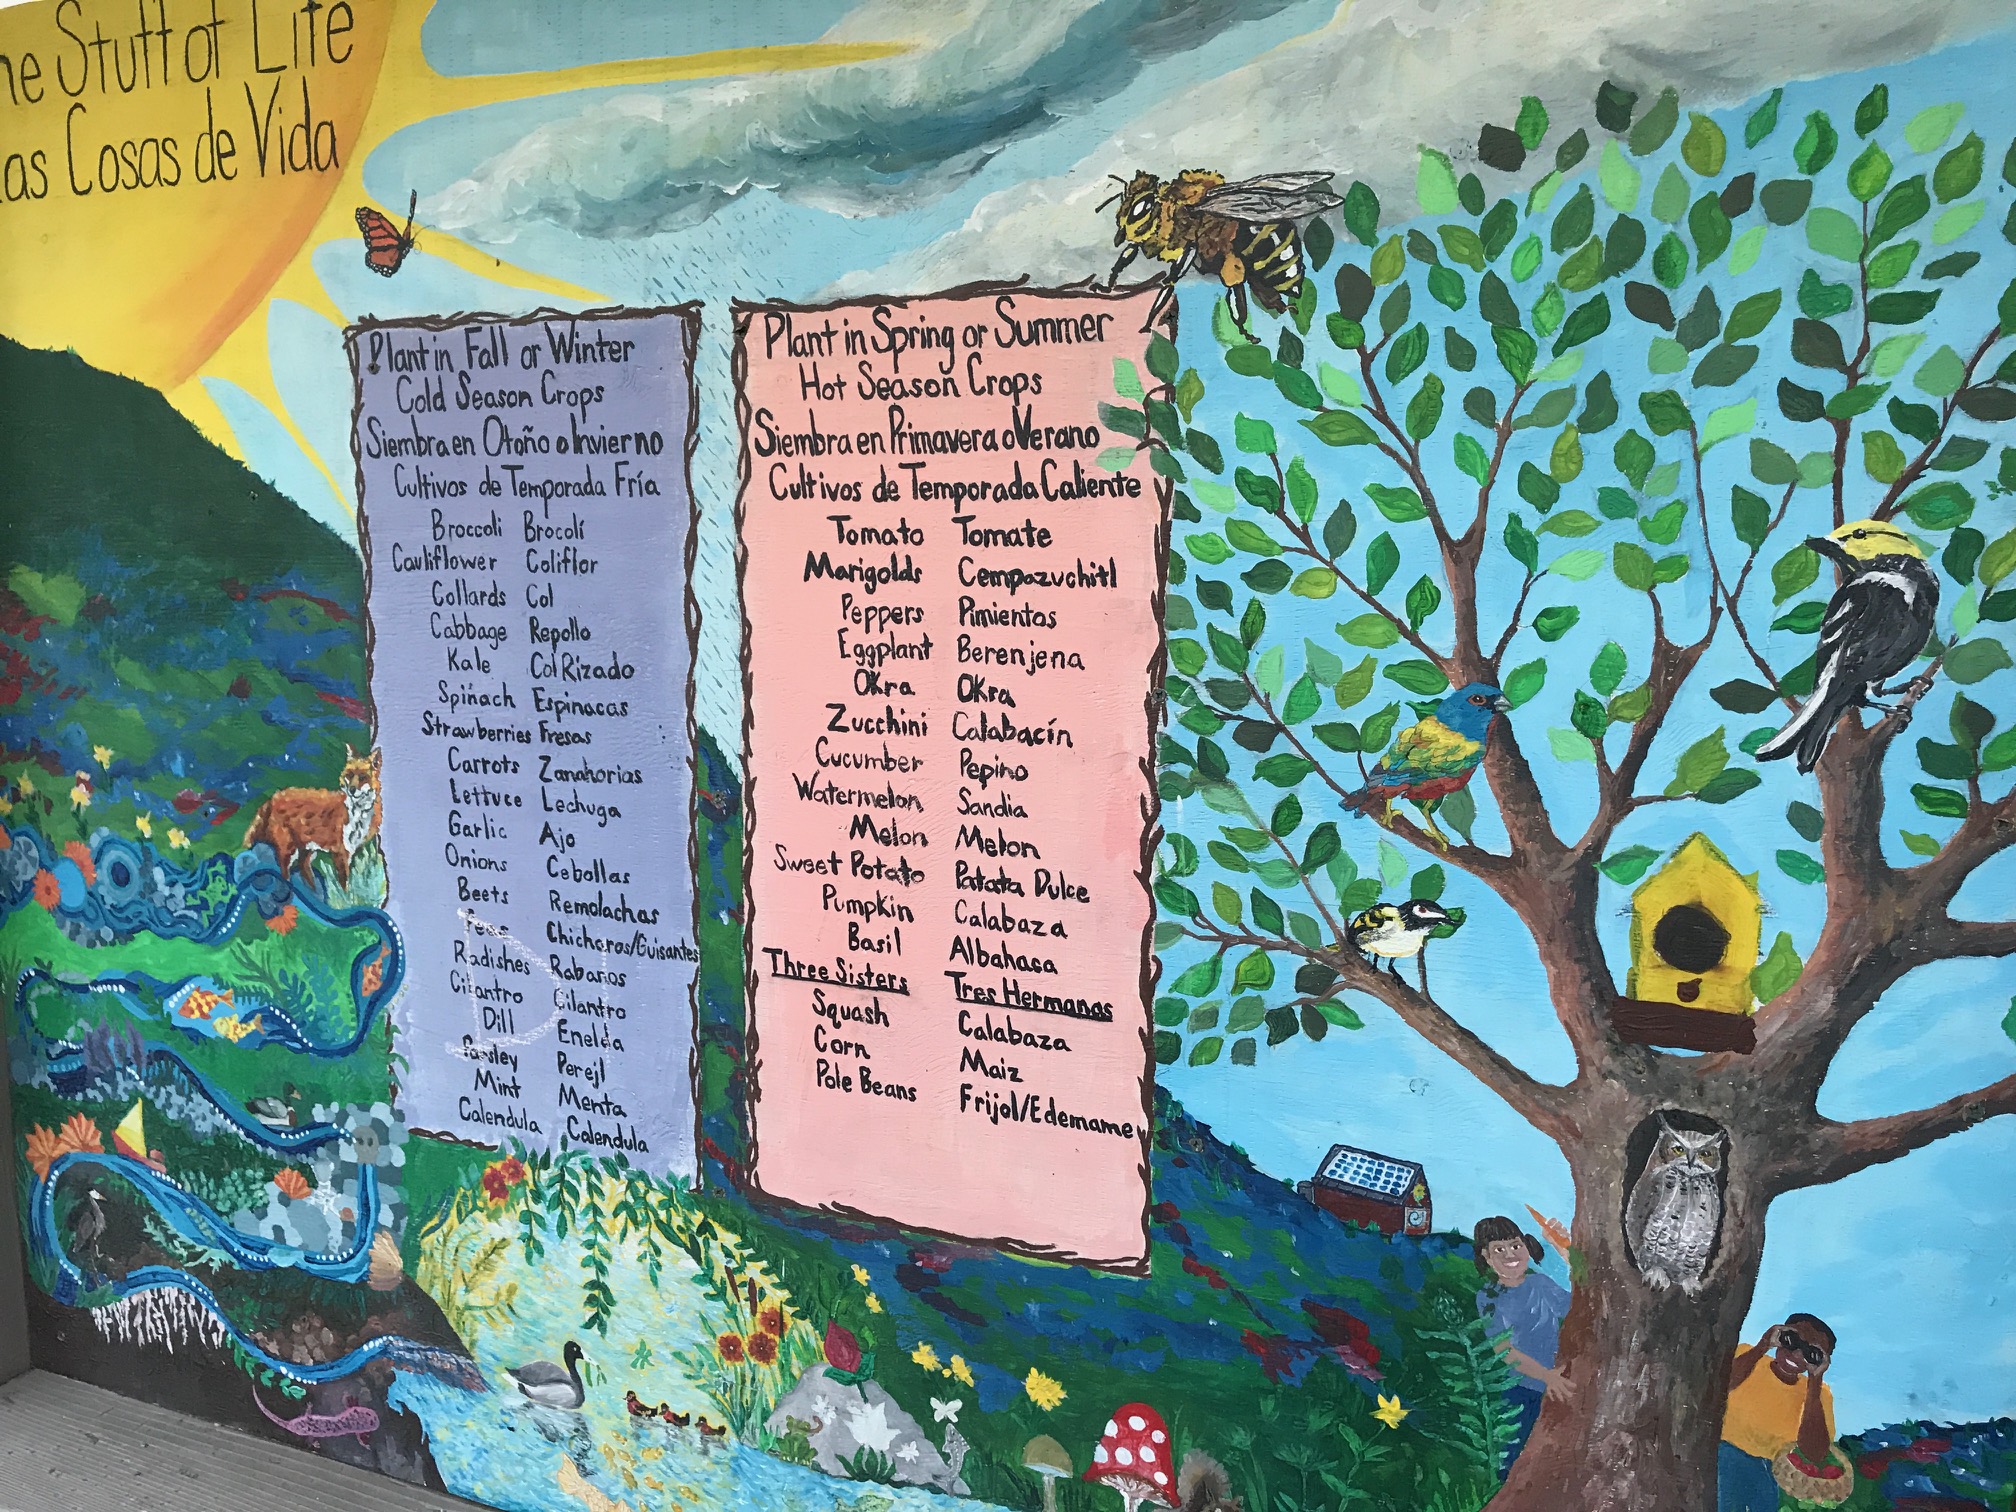 he Stuff of Life
as Cosas de Vida
Plant in Fall or Winter
Cold Season Crops
Siembra en Otoño o Invierno
Cultivos de Temporada Fría
Broccoli Brocolí
Cauliflower Coliflor
Collards Col
Cabbage Repollo
Kale Col Rizado
Spinach Espinacas
Strawberries Fresas
Carrots Zanahorias
Lettuce Lechuga
Garlic Ajo
Onions Cebollas
Beets Remolachas
Peas Chicharos/Guisantes
Radishes Rabanos
Cilantro Cilantro
Dill Enelda
Parsley Perejl
Mint Menta
Calendula Calendula
Plant in Spring or Summer
Hot Season Crops
Siembra en Primavera o Verano
Cultivos de Temporada Caliente
Tomato Tomate
Marigolds Cempazuchitl
Peppers Pimientos
Eggplant Berenjena
Okra Okra
Zucchini Calabacín
Cucumber Pepino
Watermelon Sandia
Melon Melon
Sweet Potato Patata Dulce
Pumpkin Calabaza
Basil Albahaca
Three Sisters Tres Hermanas
Squash Calabaza
Corn Maiz
Pole Beans Frijol/Edemame